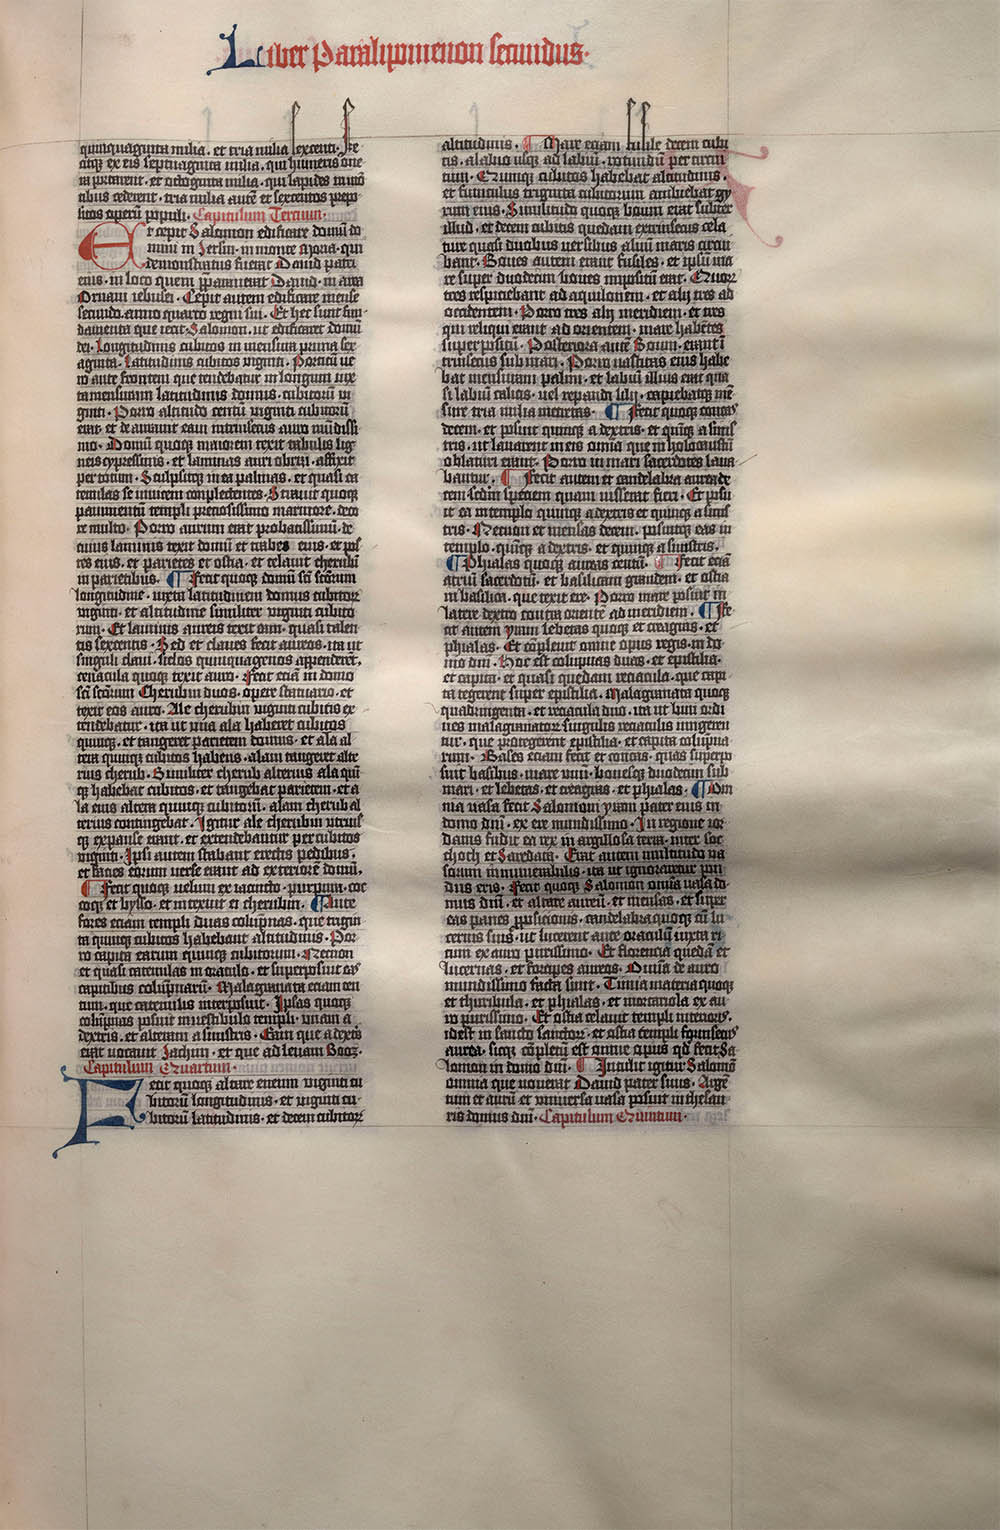 Liber Paralipomenon secundus·
quinquaginta milia· et tria milia sexcenti· Fe
citq̄ ex eis septuaginta milia· qui humeris one
ra portarent· et octoginta milia· qui lapides in mō
tibus cederent· tria milia autē et sexcentos prepo
sitos operū populi· Capitulum Tercium·
Et cepit Salomon edificare domū do
mini in Jerlm· in monte Moria· qui
demonstratus fuerat David patri
eius· in loco quem ꝑparaverat David· in area
Ornam iebusei· Cepit autem edificare mense
secundo· anno quarto regni sui· Et hec sunt fun
damenta que iecit Salomon· ut edificaret domū
dei· Longitudinis cubitos in mensura prima sex
aginta· Latitudinis cubitos viginti· Porticū ve
ro ante frontem que tendebatur in longum iux
ta mensuram latitudinis domus· cubitorum vi
ginti· Porro altitudo centū viginti cubitorū
erat· et deauravit eam intrinsecus auro mūdissi
mo· Domū quoque maiorem texit tabulis lig
neis cypressinis· et laminas auri obrizi· affixit
per totum· Sculpsitq̄ in ea palmas· et quasi ca
temilas se invicem complectentes· Stravit quoq̄
pavimentū templi preciosissimo marmore· deco
re multo· Porro aurum erat probatissimū· de
cuius laminis texit domū et trabes eius· et pos
tes eius· et parietes et ostia· et celavit cherubī
in parietibus· ¶ Fecit quoq̄ domū sc̄i sc̄torum
longitudinē· iuxta latitudinem domus cubitorꝝ
viginti· et altitudinē similiter viginti cubito
rum· Et laminis aureis texit eam· quasi talen
tis sexcentis· Sed et clavos fecit aureos· ita ut
singuli clavi· siclos quinquagenos appenderēt·
cenacula quoq̄ texit auro· Fecit eciā in domo
sc̄i sc̄torum Cherubin duos· opere statuario· et
texit eos auro· Ale cherubin viginti cubitis ex
tendebatur· ita ut una ala haberet cubitos
quinq̄· et tangeret parietem domus· et ala al
tera quinq̄ cubitos habens· alam tangeret alte
rius cherub· Similiter cherub alterius ala quī
q̄ habebat cubitos· et tangebat parietem· et a
la eius altera quinq̄ cubitorū· alam cherub al
terius contingebat· Igitur ale cherubin utrius
q̄ expanse erant· et extendebantur per cubitos
viginti· Ipsi autem stabant erectis pedibus·
et facies eorum verse erant ad exteriorē domū·
¶ Fecit quoq̄ velum ex iacincto· purpura· coc
coq̄ et bysso· et intexuit ei cherubin· ¶ Ante
fores eciam templi duas colūpnas· que trigin
ta quinq̄ cubitos habebant altitudinis· Por
ro capita earum quinq̄ cubitorum· Necnon
et quasi catenulas in oraculo· et superposuit eas
capitibus colūpnarū· Malagranata eciam cen
tum· que catenulis interposuit· Ipsas quoq̄
colūpnas posuit in vestibulo templi· unam a
dextris· et alteram a sinistris· Eam que a dextris
erat vocavit Jachin· et que ad levam Booz·
Capitulum Quartum·
Fecit quoq̄ altare eneum viginti cu
bitorū longitudinis· et viginti cu·
bitorū latitudinis· et decem cubitorꝝ
altitudinis· ¶ Mare eciam fusile decem cubi
tis· a labio usq̄ ad labiū· rotundū per circui
tum· Quinq̄ cubitos habebat altitudinis·
et funiculus triginta cubitorum ambiebat gy
rum eius· Similitudo quoq̄ boum erat subter
illud· et decem cubitis quedam extrinsecus cela
ture quasi duobus versibus alvū maris circui
bant· Boves autem erant fusiles· et ipsū ma
re super duodecim boves impositū erat· Quorꝝ
tres respiciebant ad aquilonem· et alij tres ad
occidentem· Porro tres alij meridiem· et tres
qui reliqui erant ad orientem· mare habētes
superpositū· Posteriora autē Boum· erant ī
trinsecus sub mari· Porro vastitas eius habe
bat mensuram palmi· et labiū illius erat qua
si labiū calicis· vel repandi lilij· capiebatq̄ mē
sure tria milia metretas· ¶ Fecit quoq̄ concas
decem· et posuit quinq̄ a dextris· et quīq̄ a sinis
tris· ut lavarent in eis omīa que in holocaustū
oblaturi erant· Porro in mari sacerdotes lava
bantur· ¶ Fecit autem et candelabra aurea de
cem secdm speciem quam iusserat fieri· Et posu
it ea in templo quinq̄ a dextris et quinq̄ a sinis
tris· Necnon et mensas decem· posuitq̄ eas in
templo· quīq̄ a dextris· et quinq̄ a sinistris·
¶ Phialas quoq̄ aureas centū· ¶ Fecit eciā
atriū sacerdotū· et basilicam grandem· et ostia
in basilica· que texit ere· Porro mare posuit in
latere dextro contra orientē ad meridiem· ¶ Fe
cit autem yram lebetas quoq̄ et creagras· et
phialas· Et cōplevit omne opus regis· in do·
mo dm̄· Hoc est colūpnas duas· et epistilia·
et capita· et quasi quedam reciacula· que capi·
ta tegerent super epistilia· Malagranata quoq̄
quadringenta· et reciacula duo· ita ut bini ordi
nes malagranatorꝝ singulis reciaculis iungeren
tur· que protegerent epistilia· et capita colūpna
rum· Bases eciam fecit et concas· quas superpo
suit basibus· mare unū· bovesq̄ duodecim sub
mari· et lebetas· et creagras· et phialas· ¶ Om
nia vasa fecit Salomoni yram pater eius in
domo dm̄· ex ere mundissimo· In regione ior
danis fudit ea rex in argillosa terra· inter soc
choch et Saredata· Erat autem multitudo va
sorum innumerabilis· ita ut ignoraretur pon
dus eris· Fecit quoq̄ Salomon omīa vasa do
mus dm̄· et altare aureū· et mensas· et super
eas panes ꝓposicionis· candelabra quoq̄ cū lu
cernis suis· ut lucerent ante oraculū iuxta ri
tum ex auro purissimo· Et florencia quedā et
lucernas· et forcipes aureos· Omīa de auro
mundissimo facta sunt· Timia materia quoq̄
et thuribula· et phialas· et mortariola ex au
ro purissimo· Et ostia celavit templi interioris·
idest in sancto sanctorꝝ· et ostia templi forinsecus
aurea· sicq̄ cōpletū est omne opus qd fecit Sa
lomon in domo dm̄· ¶ Intulit igitur Salomō
omnia que voverat David pater suus· Argē
tum et aurū et universa vasa posuit in thesau
ris domus dm̄· Capitulum Quintum·